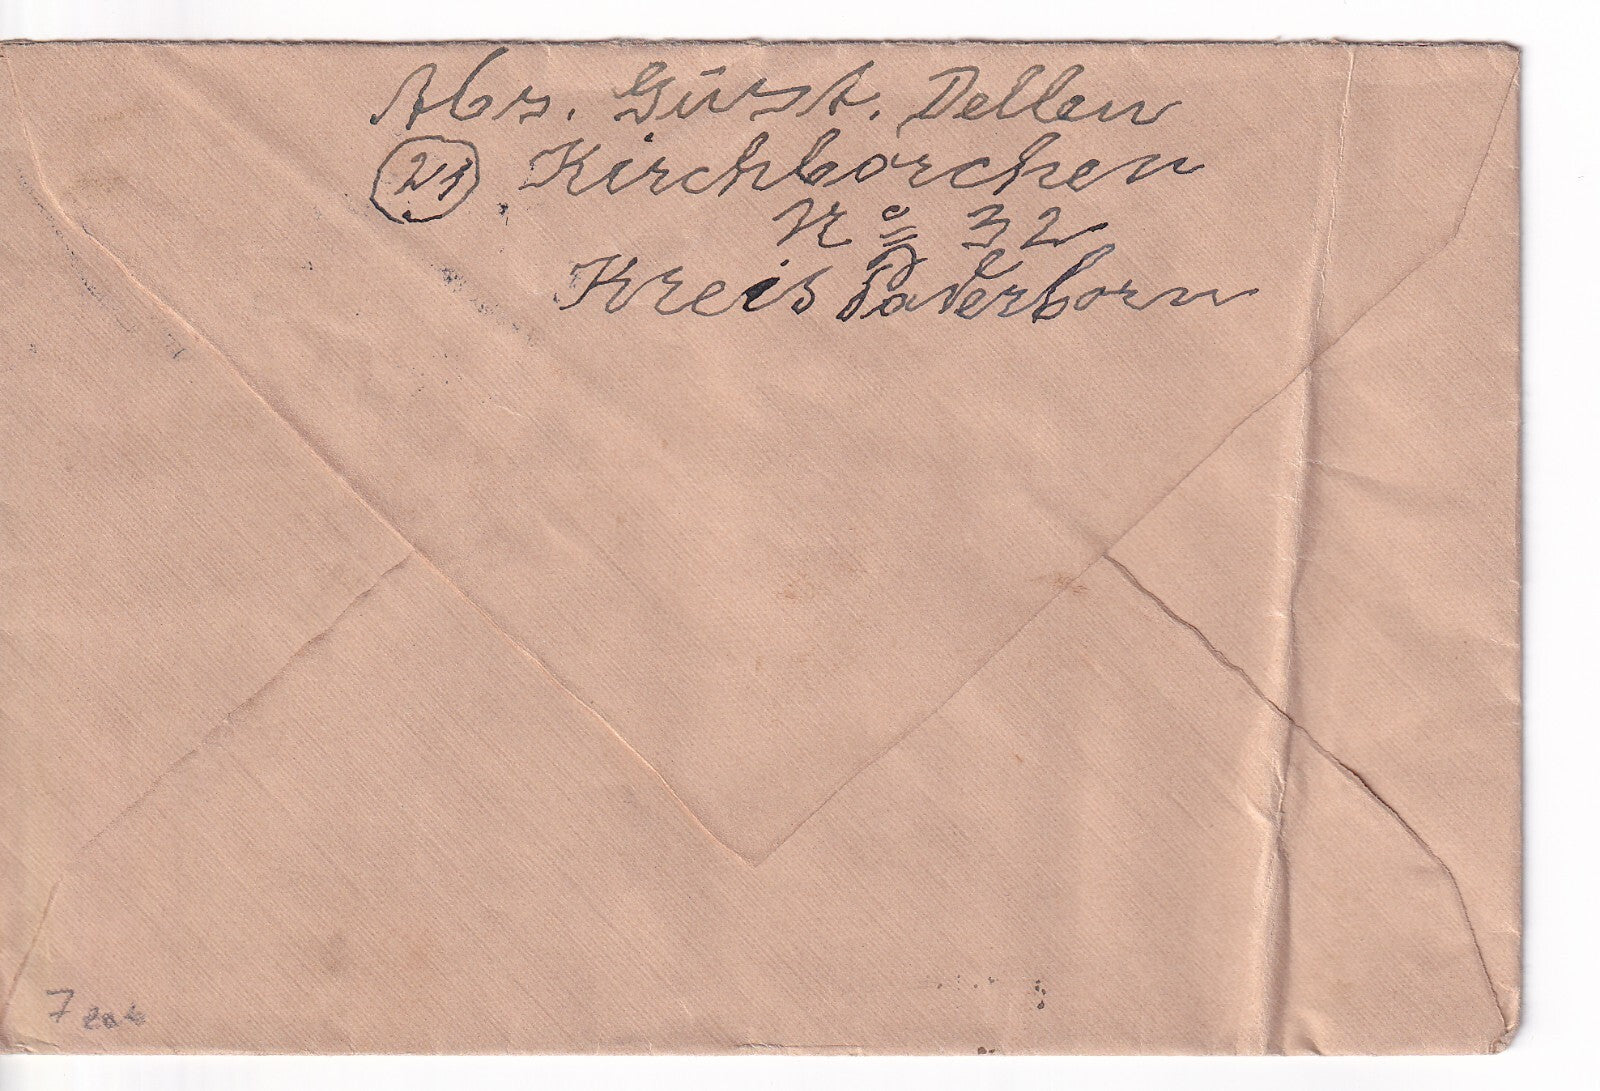 Abs. Gürst. Dellen
(21) Kirchborchen
No 32
Kreis Paderborn
7